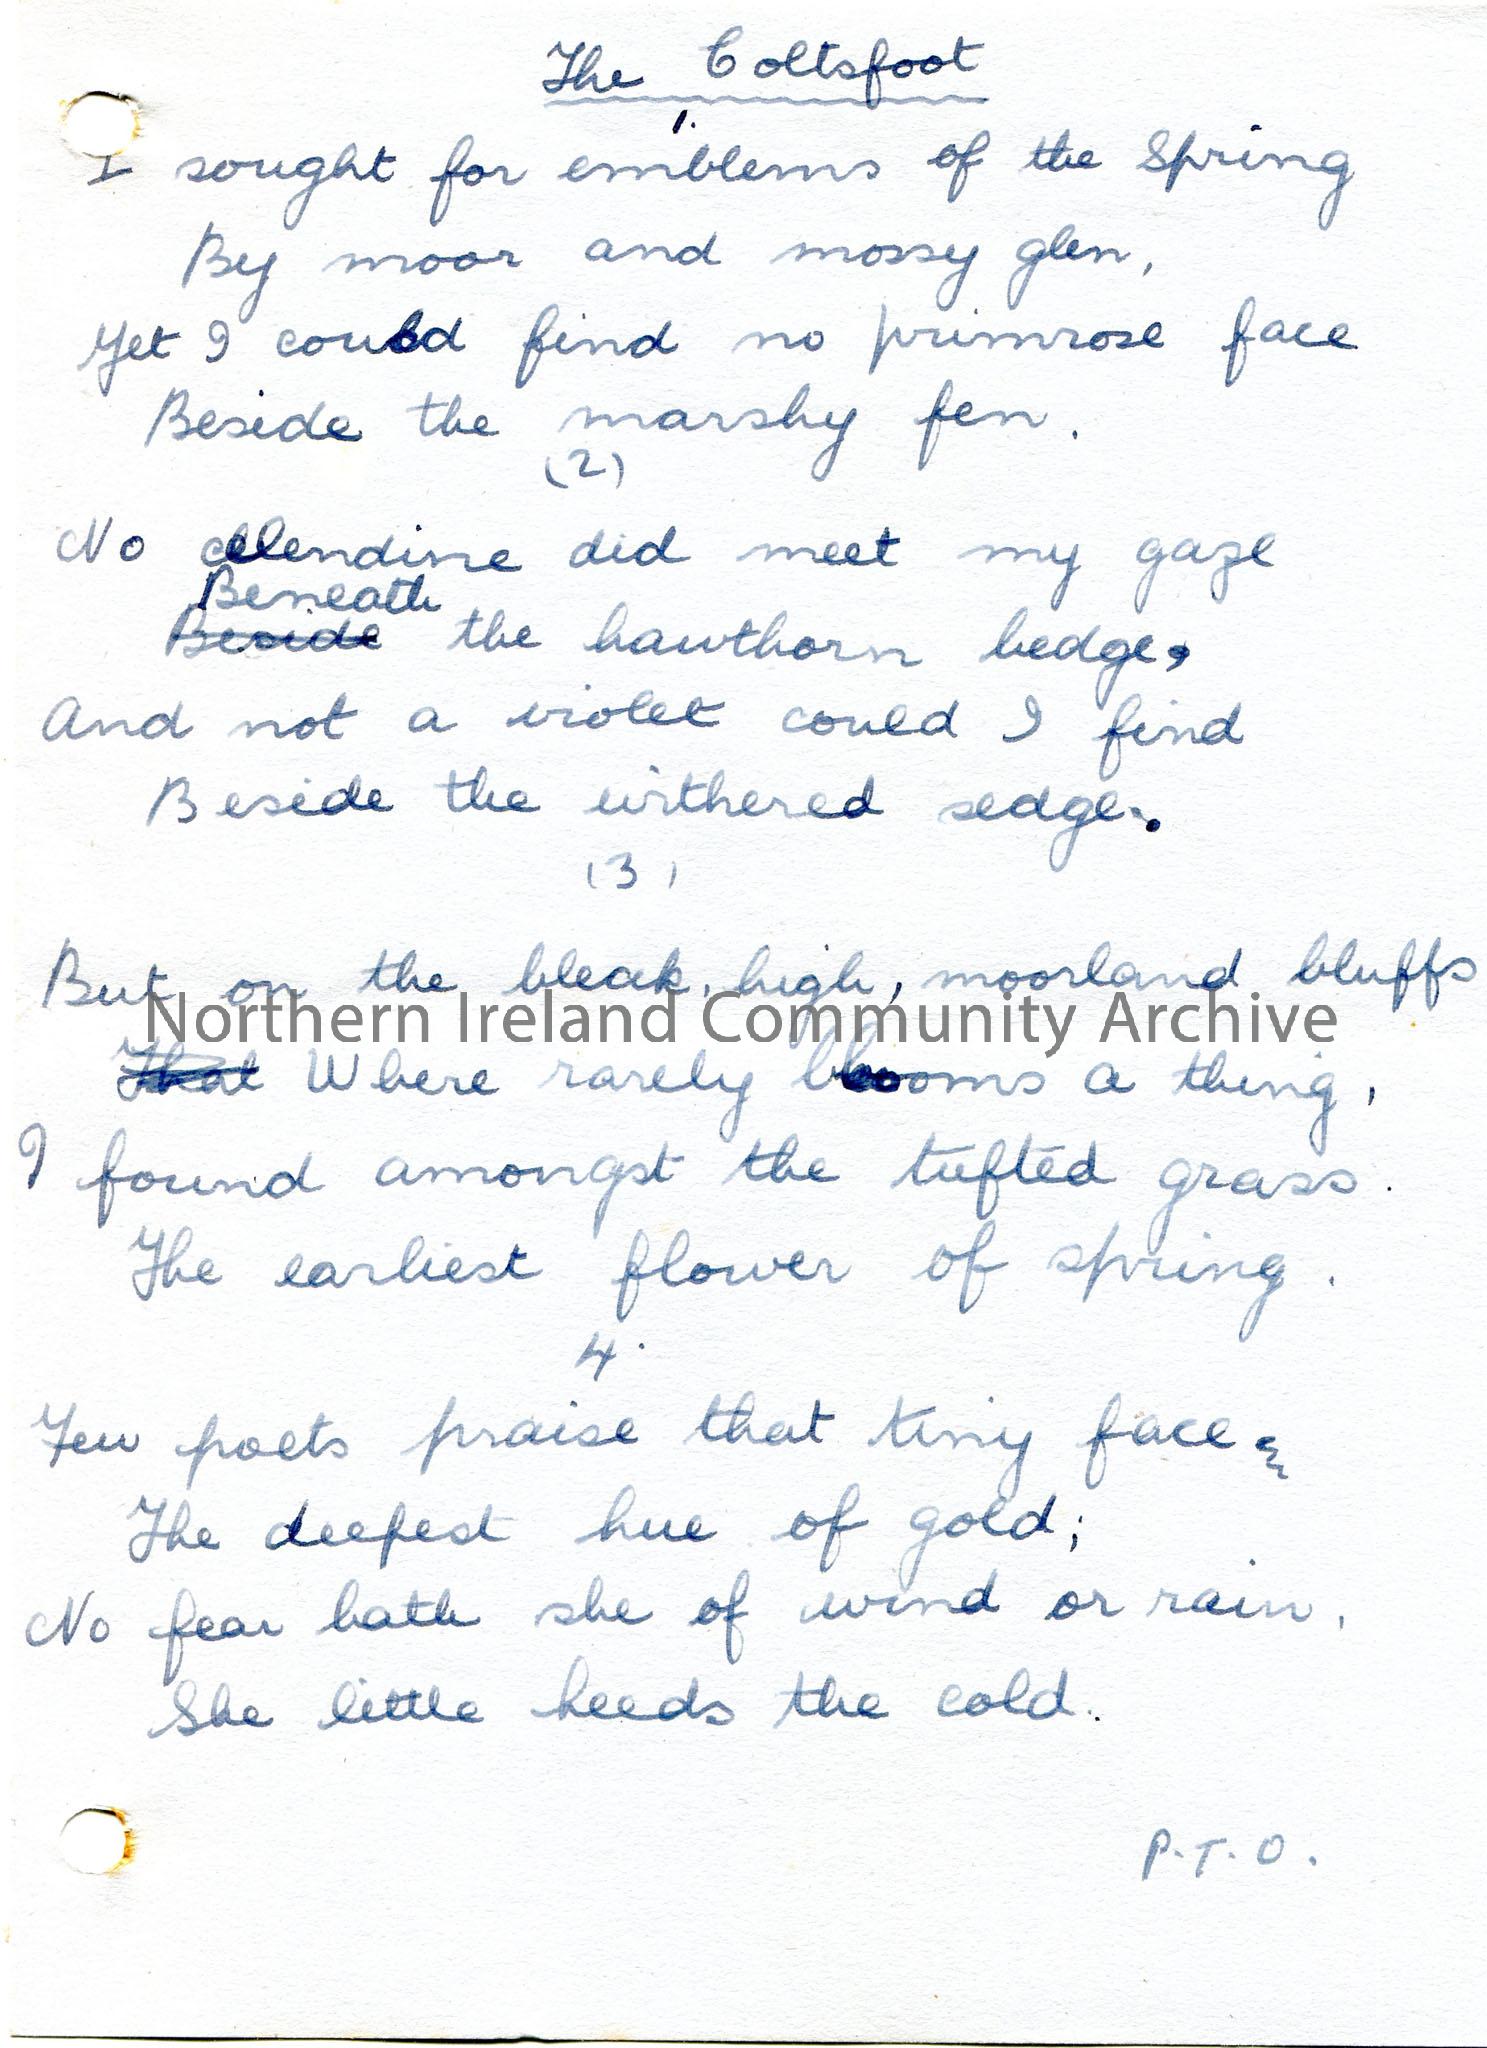 The Coltsfoot
1.
I sought for emblems of the Spring
By moor and mossy glen,
Yet I could find no primrose face
Beside the marshy fen.
(2)
No celendine did meet my gaze
Beneath
Beside the hawthorn hedge,
And not a violet could I find
Beside the withered sedge.
(3)
But on the bleak, high, moorland bluffs
Northern Ireland Community Archive
That Where rarely blooms a thing,
I found amongst the tufted grass.
The earliest flower of spring.
4.
Few poets praise that tiny face
The deepest hue of gold;
No fear hath she of wind or rain,
She little heeds the cold.
P.T.O.